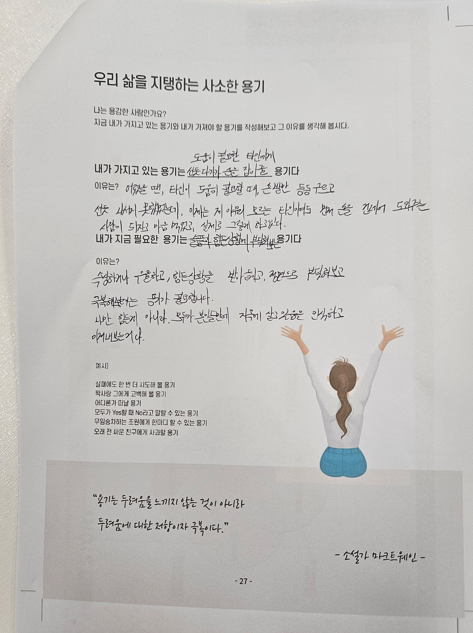 우리 삶을 지탱하는 사소한 용기
나는 용감한 사람인가요?
지금 내가 가지고 있는 용기와 내가 가져야 할 용기를 작성해보고 그 이유를 생각해 봅시다.
도움이 필요한 타인에게
내가 가지고 있는 용기는 선뜻 다가가 손을 용기다
이유는? 어렸을 땐, 타인이 도움이 필요할 때, 발만 동동 구르고
선뜻 이제는 저 모르는 먼저 손을 도와주는
사람이 되자고 마음 먹었고, 실제로 그렇게 하고 있다.
내가 지금 필요한 용기는 용기다
이유는?
우울하고, 힘든상황을 받아들이고, 부딪혀보고
극복해보려는 용기가 필요합니다.
나만 힘든게 아니라, 모두가 살고 있음을 인식하고
예시)
실패에도 한 번 더 시도해 볼 용기
짝사랑 그에게 고백해 볼 용기
어디론가 떠날 용기
모두가 Yes할 때 No라고 말할 수 있는 용기
무임승차하는 조원에게 한마디 할 수 있는 용기
오래 전 싸운 친구에게 사과할 용기
“용기는 두려움을 느끼지 않는 것이 아니라
두려움에 대한 저항이자 극복이다.”
- 소설가 마크트웨인 -
- 27 -